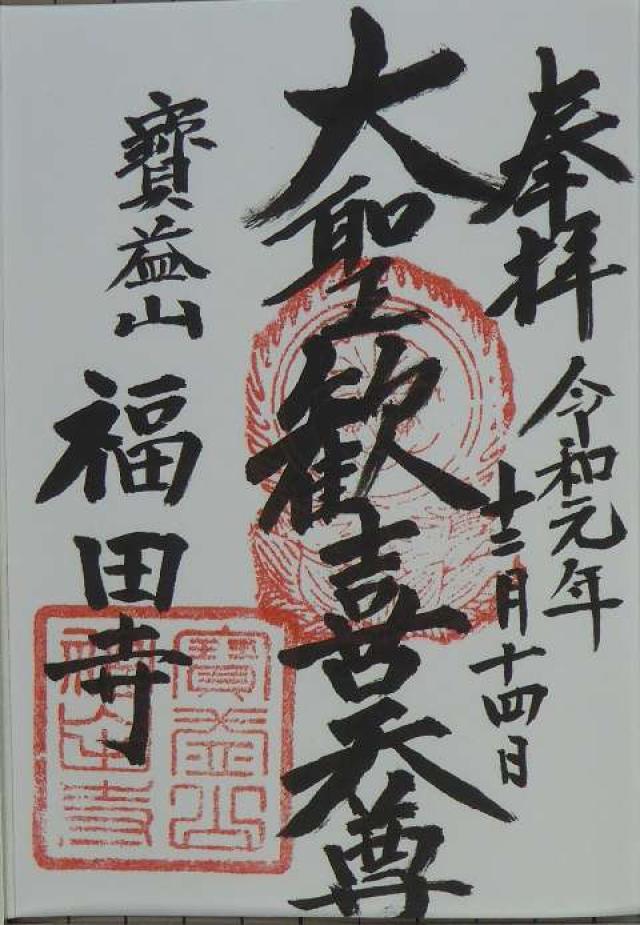 奉拝
令和元年
十二月十四日
大聖歓喜天尊
寶益山
福田寺
寶益山
福田寺